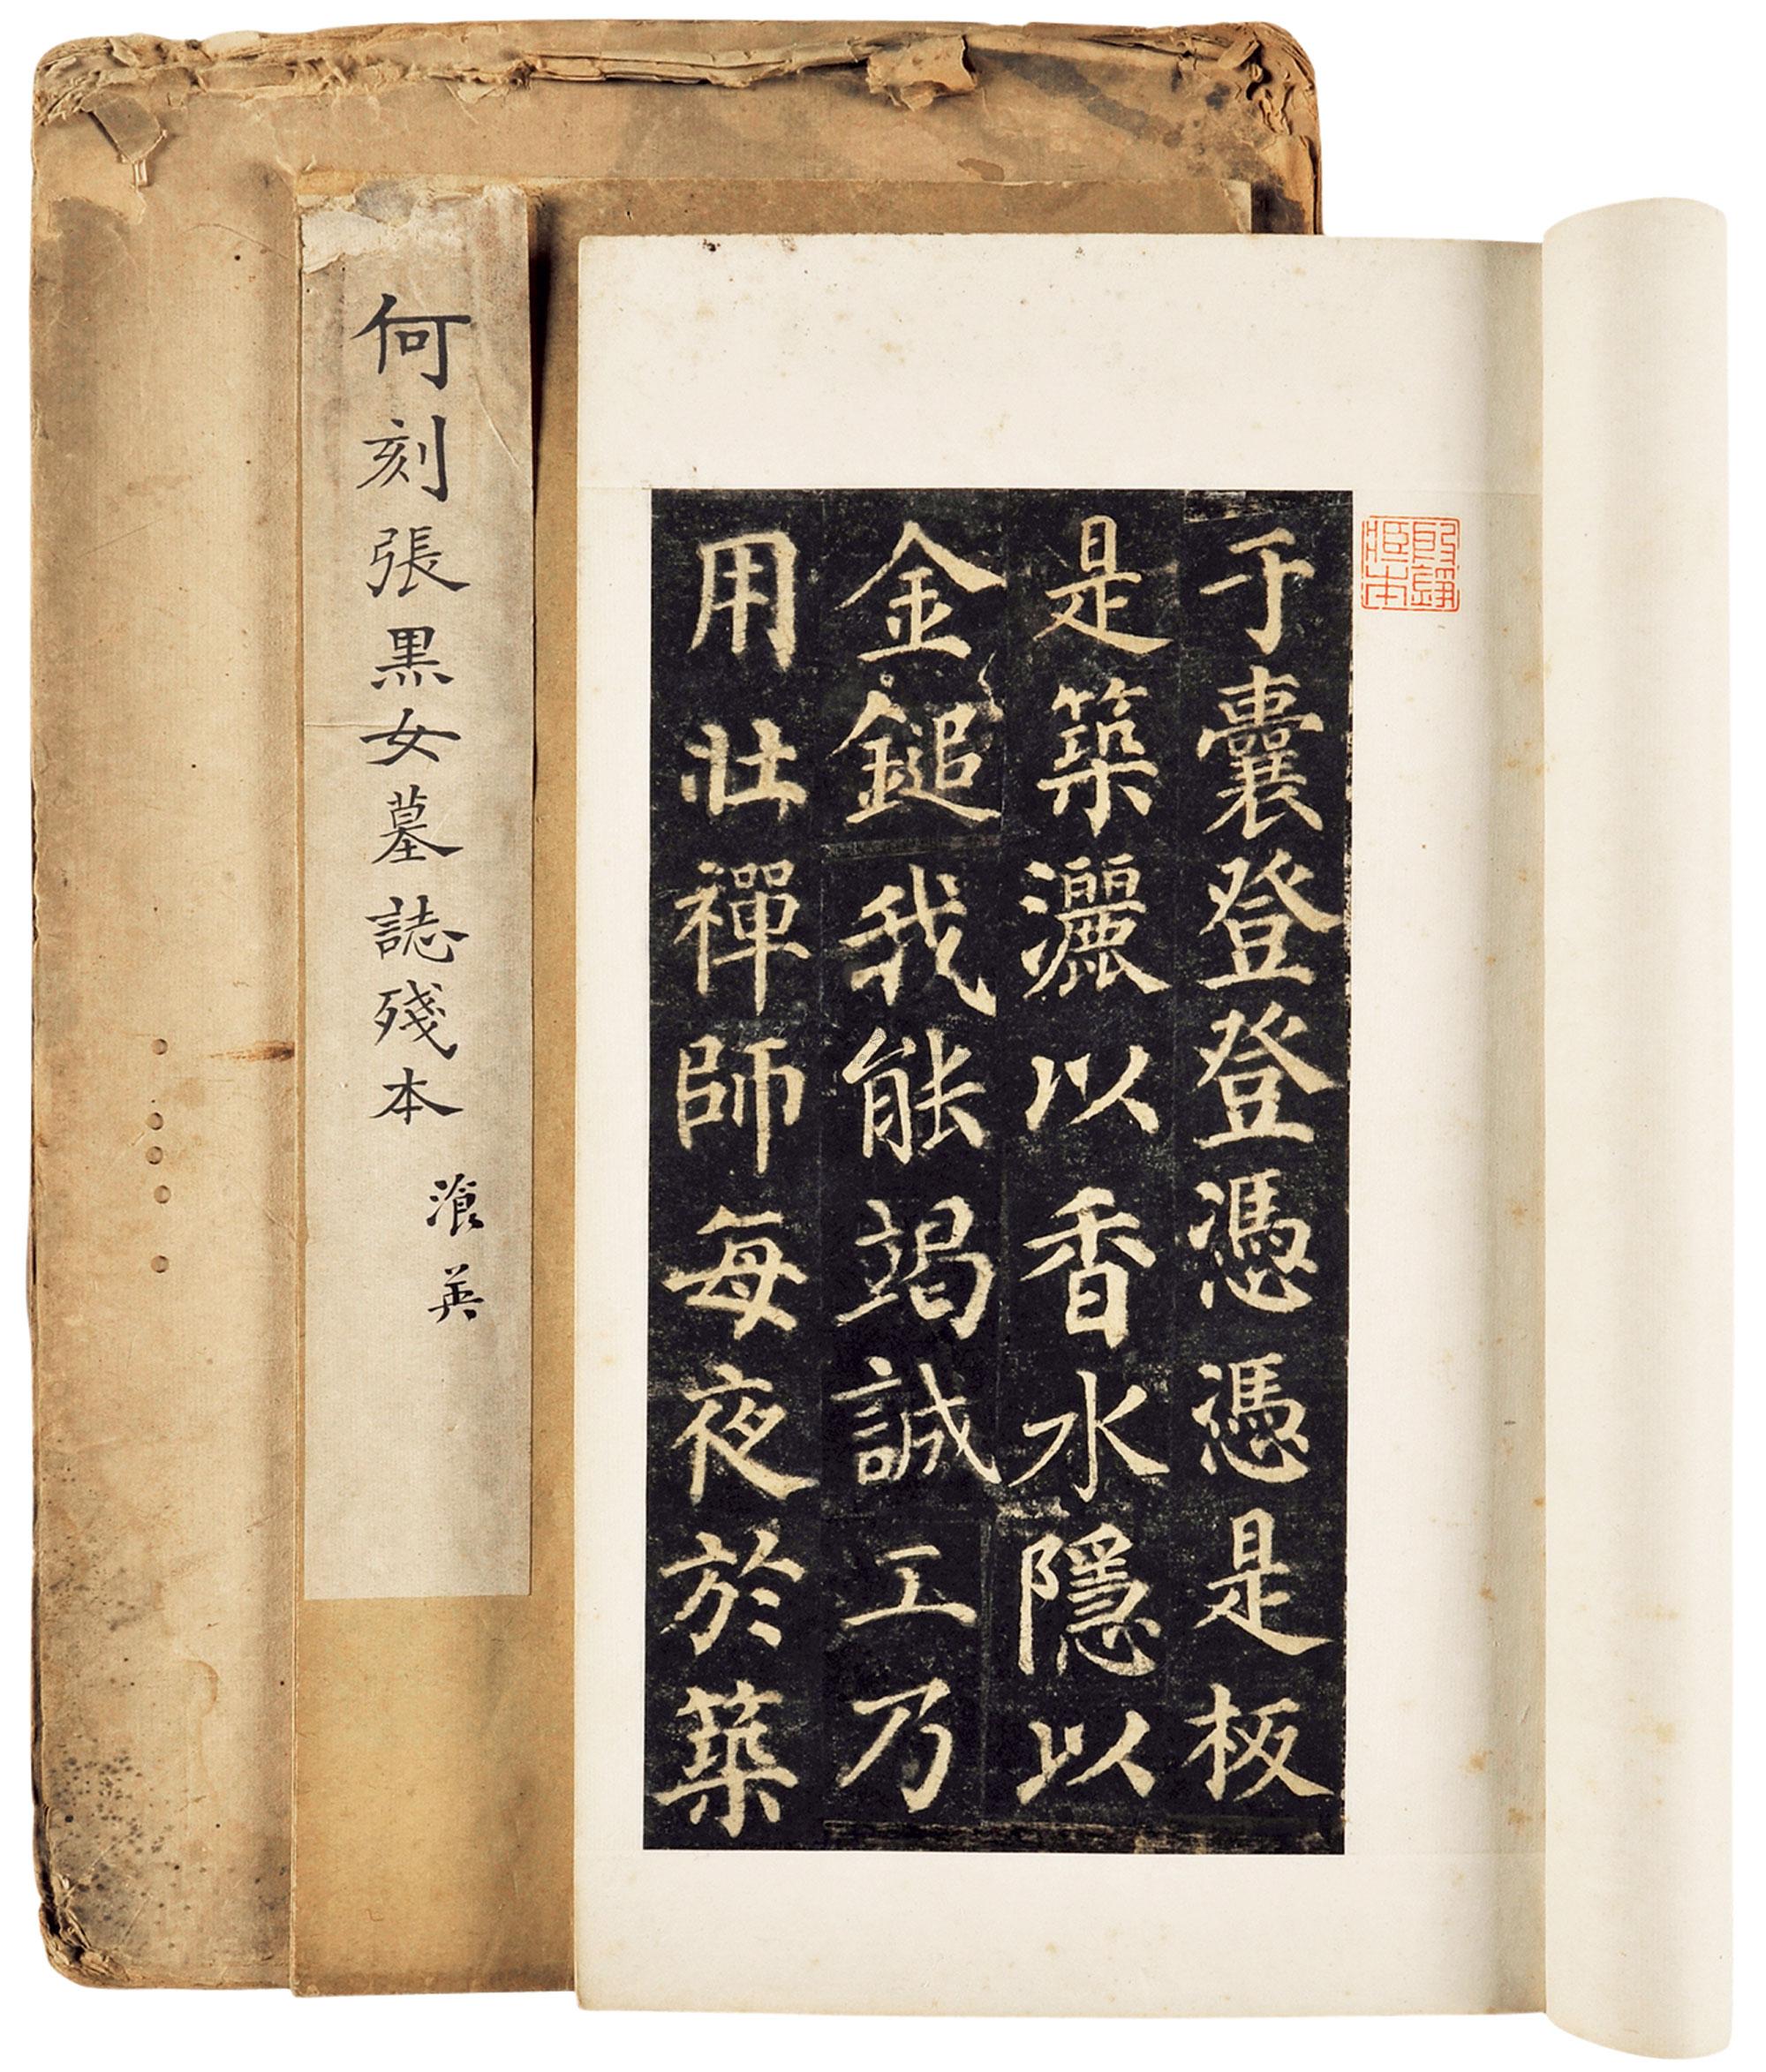 何刻張黑女墓誌殘本
湌英
于囊登登憑憑是板
是築灑以香水隱以
金鎚我能竭誠工乃
用壯禪師每夜於築